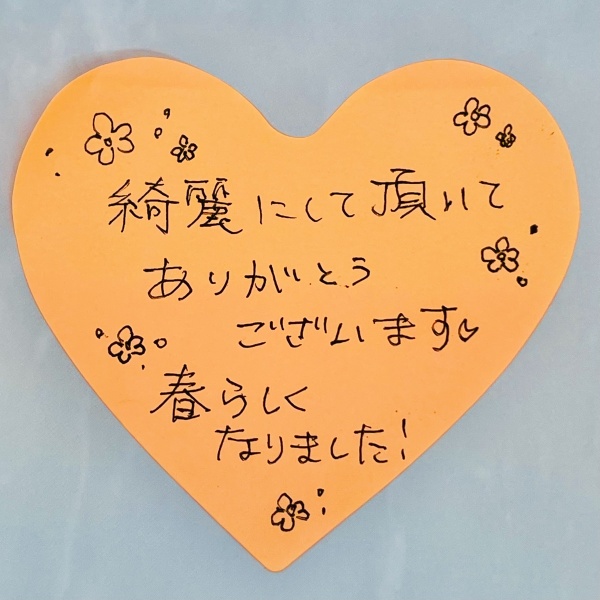 綺麗にして頂いて
ありがとう
ございます♡
春らしく
なりました!